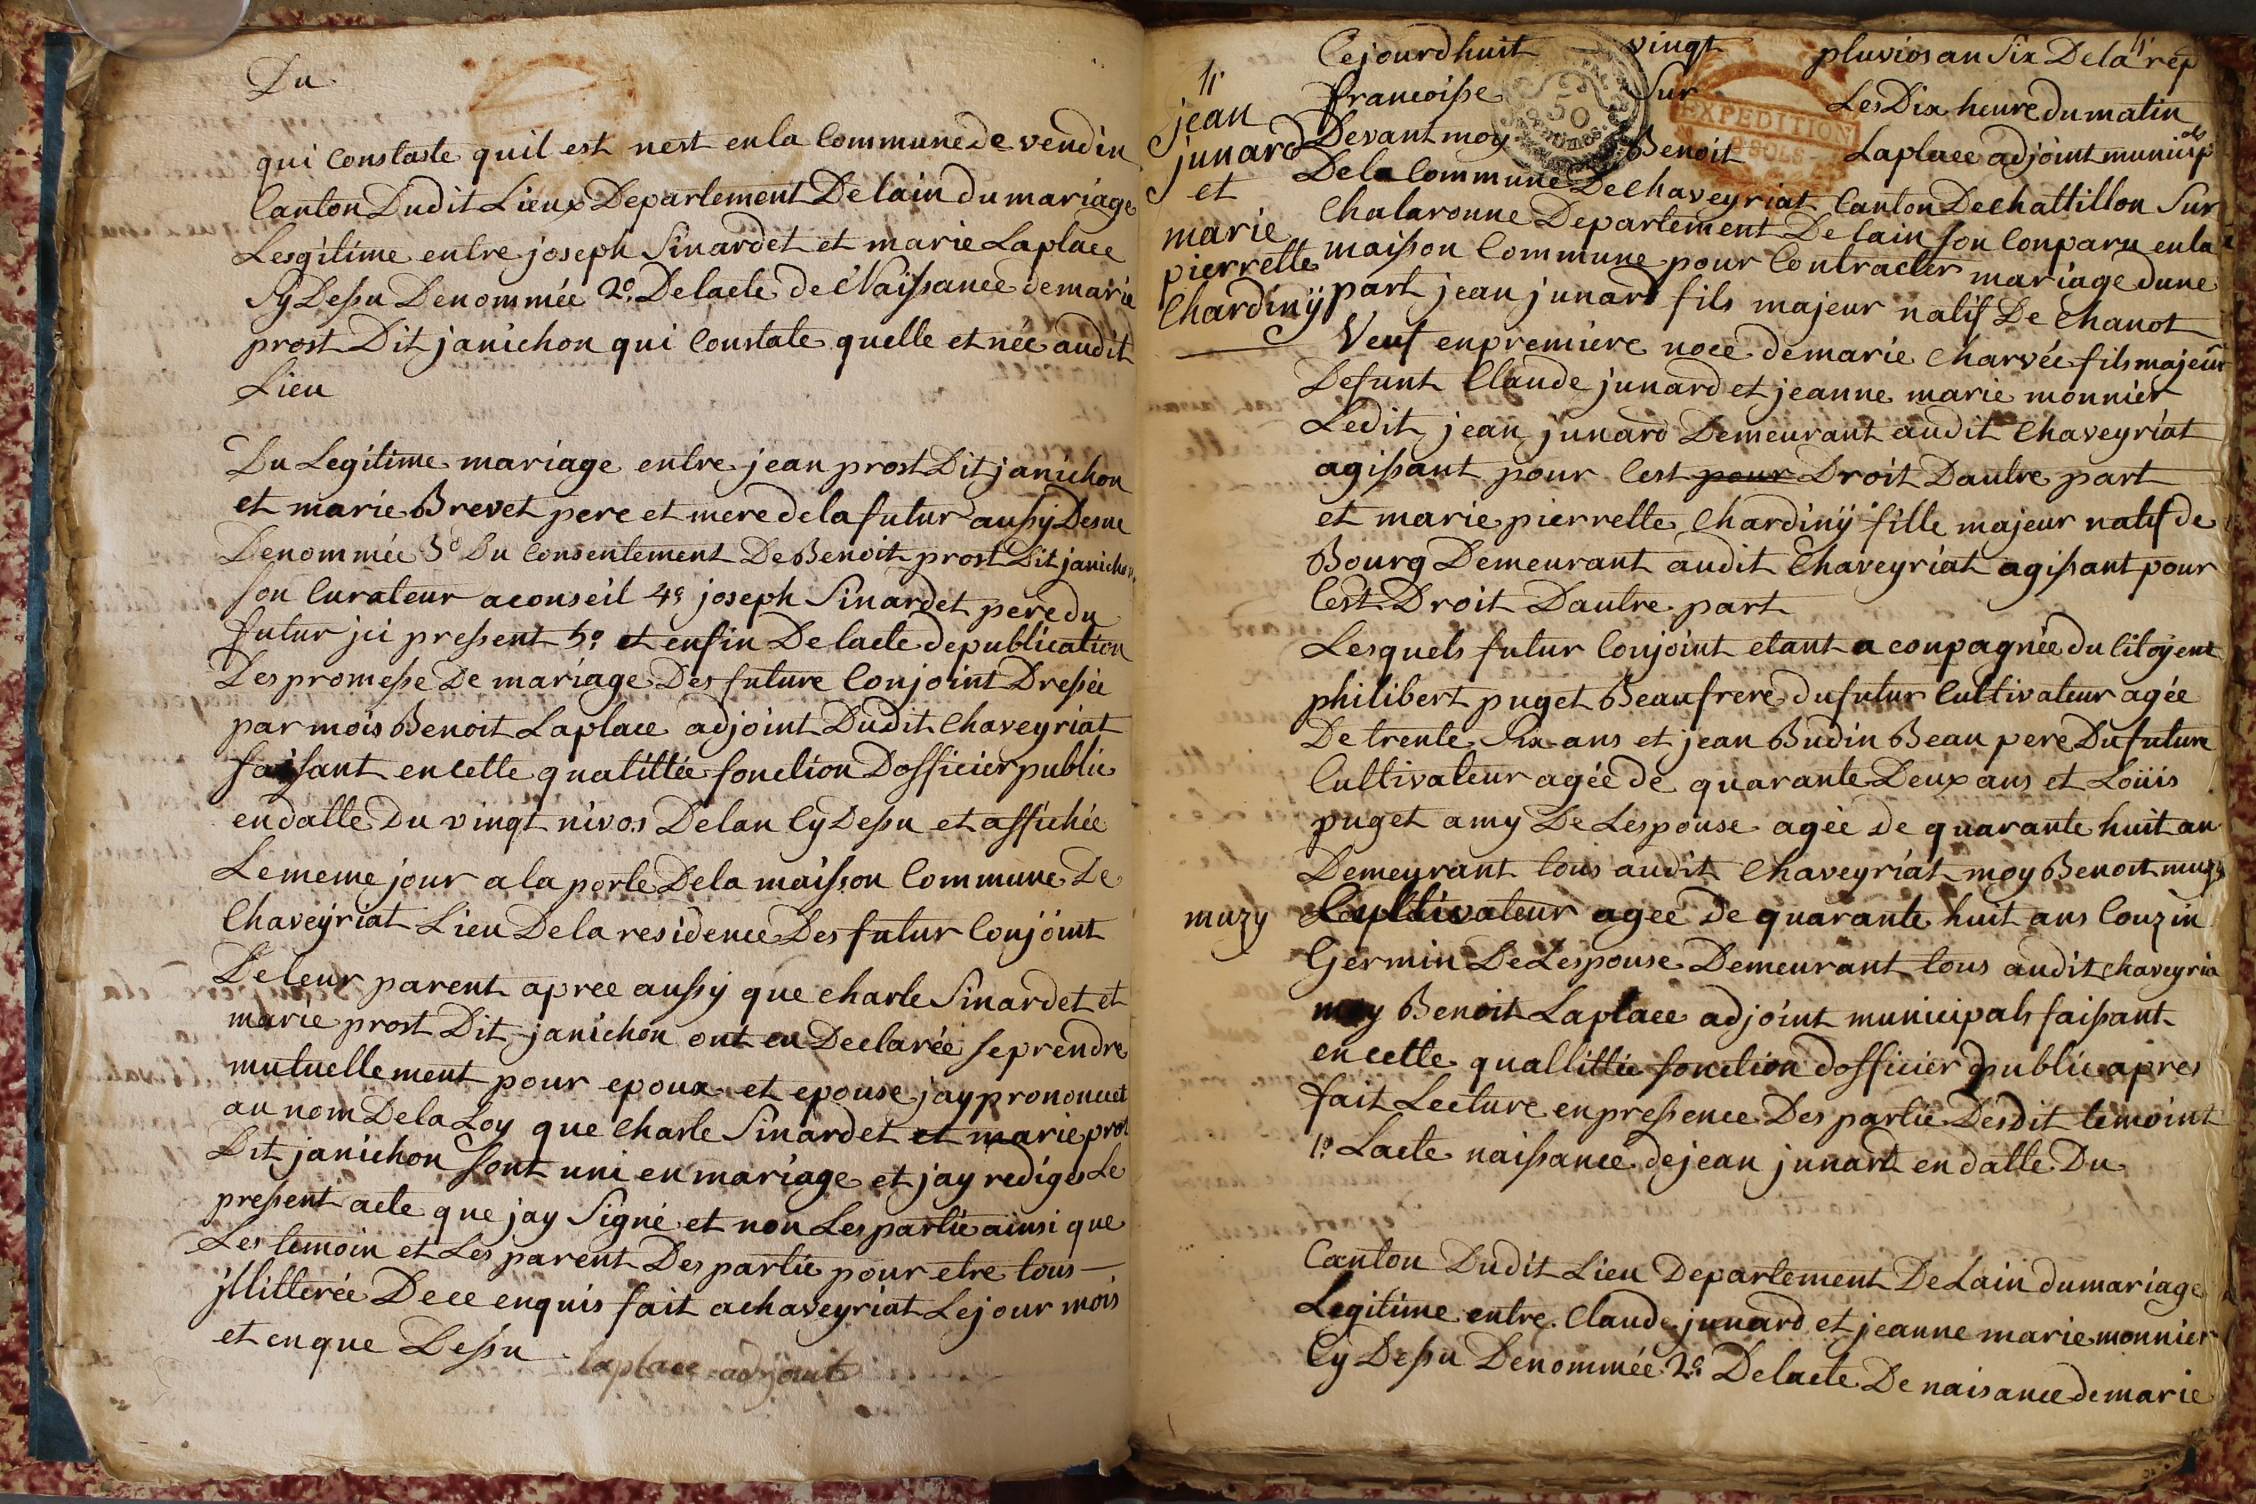 Du
qui constaste quil est nest en la Commune de vendin
Canton Dudit Lieux Departement Delain du mariage
Lesgitime entre joseph Sinardet et marie Laplace
Sy Dessu Denommée 2o. Delacte de Naissance de marie
prost Dit janichon qui Constate quelle et née audit
Lieu
Du Legitime mariage entre jean prost Dit janichon
et marie Brevet pere et mere dela futur aussy Desue
Denommée 3e Du Consentement De Benoit prost Dit janichon
son Curateur aconseil 4e joseph Sinardet pere du
futur ici pressent 5o. et enfin De lacte de publication
Des promesse De mariage Des future Conjoint Dressée
par mois Benoit Laplace adjoint Dudit Chaveyriat
faissant en cette qualittée fonction Dofficier public
en datte Du vingt nivos Delan Cy Dessu et affichée
Le meme jour a la porte Dela maisson Commune De
Chaveyriat Lieu Dela residence Des futur Conjoint
De leur parent apree aussy que charle Sinardet et
marie prost Dit janichon ont eu Declarée se prendre
mutuellement pour epoux et epouse jay prononcet
au nom Dela Loy que Charle Sinardet et marie prot
Dit janichon sont uni en mariage et jay rediges Le
pressent acte que jay Signé et non Les partie ainsi que
Les temoin et Les parent Des partie pour etre tous
jllitterée De ce enquis fait a chaveyriat Le jour mois
et en que Dessu
laplace adjoint
jean
junard
et
marie
pierrette
Chardiniÿ
Cejourdhuit vingt pluvios an Six De la rep
francoisse Sur Les Dix heure du matin
Devant moy Benoit Laplace adjoint municip als
50 centimes.
EXPEDITION
SOLS
De la Commune De Chaveyriat Canton De chattillon Sur
Chalaronne Departement De lain son Conparu en la
maisson Commune pour Contracter mariage dune
part jean junard fils majeur natif De Chanot
Veuf en premiere noce de marie Charvée fils majeur
Defunt Claude junard et jeanne marie monnier
Ledit jean junard Demeurant audit Chaveyriat
agissant pour Cest pour Droit Dautre part
et marie pierrette Chardiniÿ fille majeur natif de
Bourg Demeurant audit Chaveyriat agissant pour
Cest Droit Dautre part
Lesquels futur Conjoint etant a conpagnée du Citoyent
philibert puget Beaufrere du futur Cultivateur agée
De trente Six ans et jean Budin Beau pere Du future
Cultivateur agée de quarante Deux ans et Loüis
puget amy De Lespouse agée de quarante huit an
Demeurant tous audit Chaveyriat moy Benoit muzy
muzy
Cultivateur ageé De quarante huit ans Couzin
Germin De Lespouse Demeurant tous audit chaveyria
moy Benoit Laplace adjoint municipals faissant
en cette quallittée fonction dofficier public apres
fait Lecture en pressence Des partie Desdit temoint
1o. Lacte naissance de jean junard en datte Du
Canton Dudit Lieu Departement De Lain du mariage
Legitime entre Claude junard et jeanne marie monnier
Cy Dessu Denommée 2e Delacte De naisance de marie